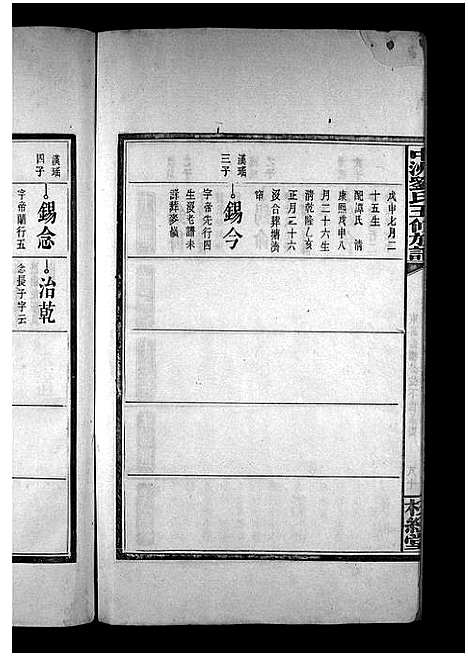 中湘劉氏五修族譜
戊申七月二
十五生
配譚氏 清
康熙戊申八
月二十六生
清乾隆乙亥
正月二十六
歿合葬塘濟
窜
漢瑤
三子
錫今
字帝先行四
生歿老譜未
詳葬麥嶺
漢瑤
四子
錫念
字帝蘭行五
治乾
念長子字云